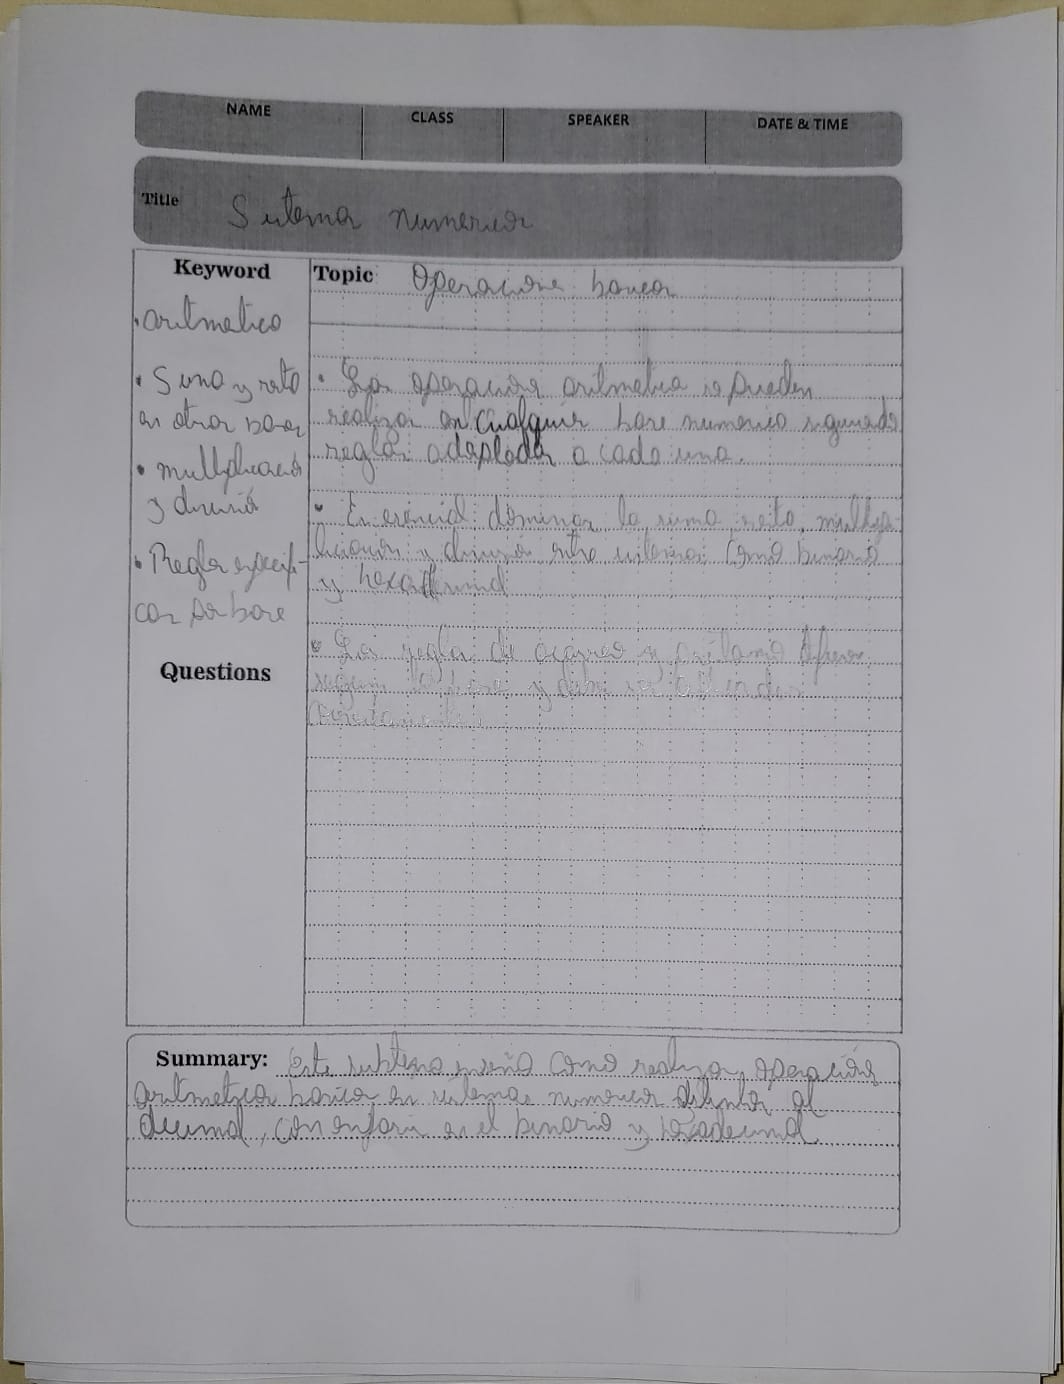 NAME CLASS SPEAKER DATE & TIME
Title Sistema numericos
Keyword
Topic Operaciones basicas
• aritmetica
• Suma y resta
en otras bases
• multiplicación
y división
• Reglas especifi-
cas por base
• Las operaciones aritmetica se pueden
realizar en cualquier base numerica siguiendo
reglas adaptadas a cada una.
• Es esencial dominar la suma resta, multipli-
cación y division entre sistemas como binario
y hexadecimal
• Las reglas de acarreo y préstamo difieren
según la base y deben ser
Questions
Summary: Este subtema enseña como realizar operación
aritmetica basica en sistemas numericos distintos al
decimal, con enfasis en el binario y hexadecimal.